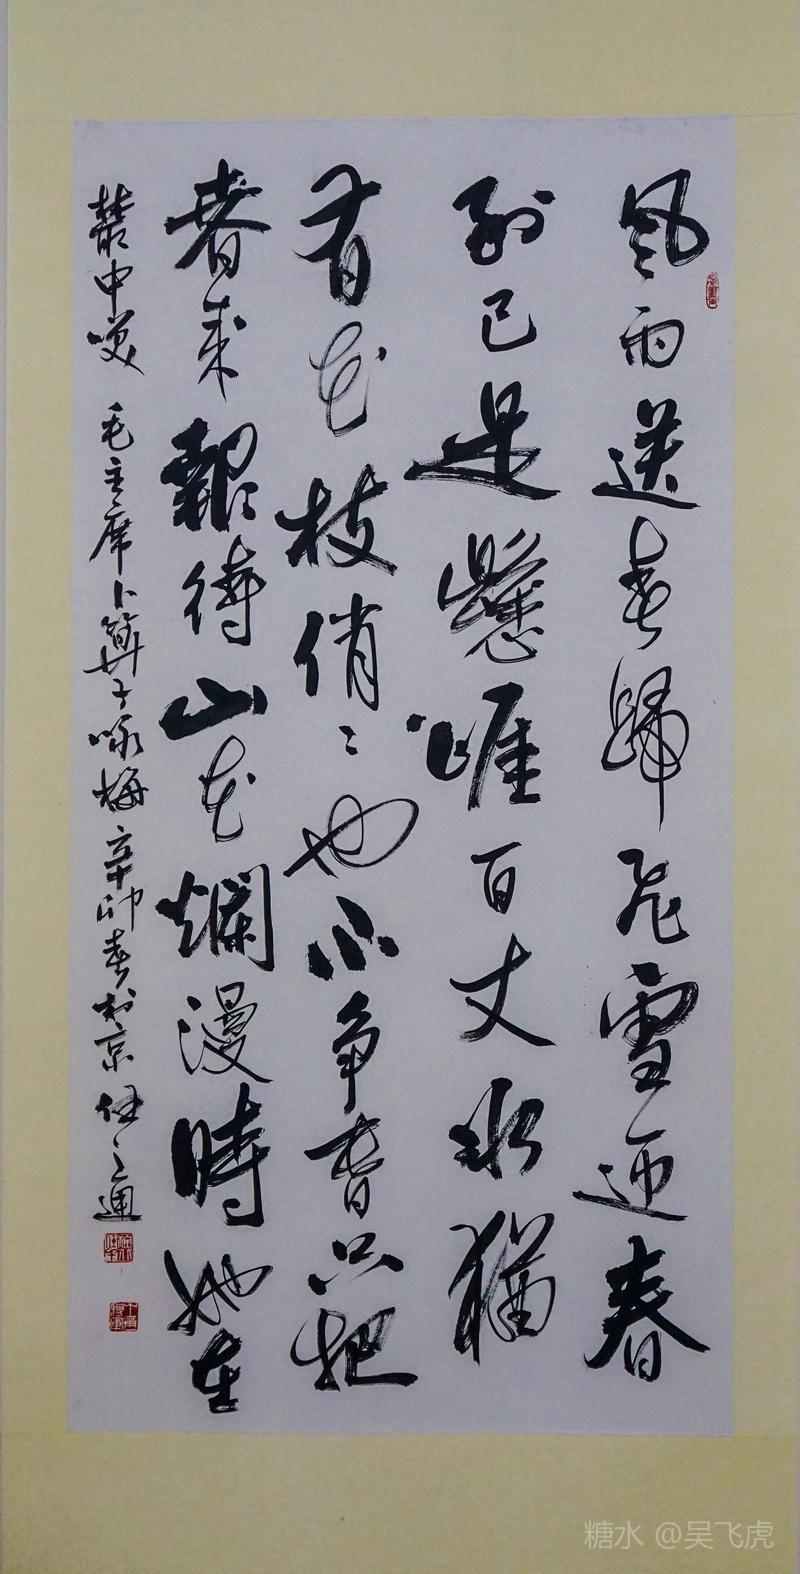 風雨送春歸飛雪迎春
到已是懸崖百丈冰猶
有花枝俏〻也不争春只把
春來報待山花爛漫時她在
叢中咲 毛主席卜算子咏梅 辛卯春於京 任之通
糖水 @吴飞虎